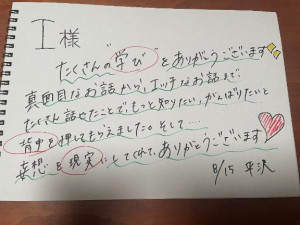 I様
たくさんの"学び"をありがとうございます
真面目なお話から、エッチなお話まで
たくさん話せたことで、もっと知りたい、がんばりたいと
背中を押してもらえました。そして…
妄想を現実にしてくれて、ありがとうございます
8/15 平沢